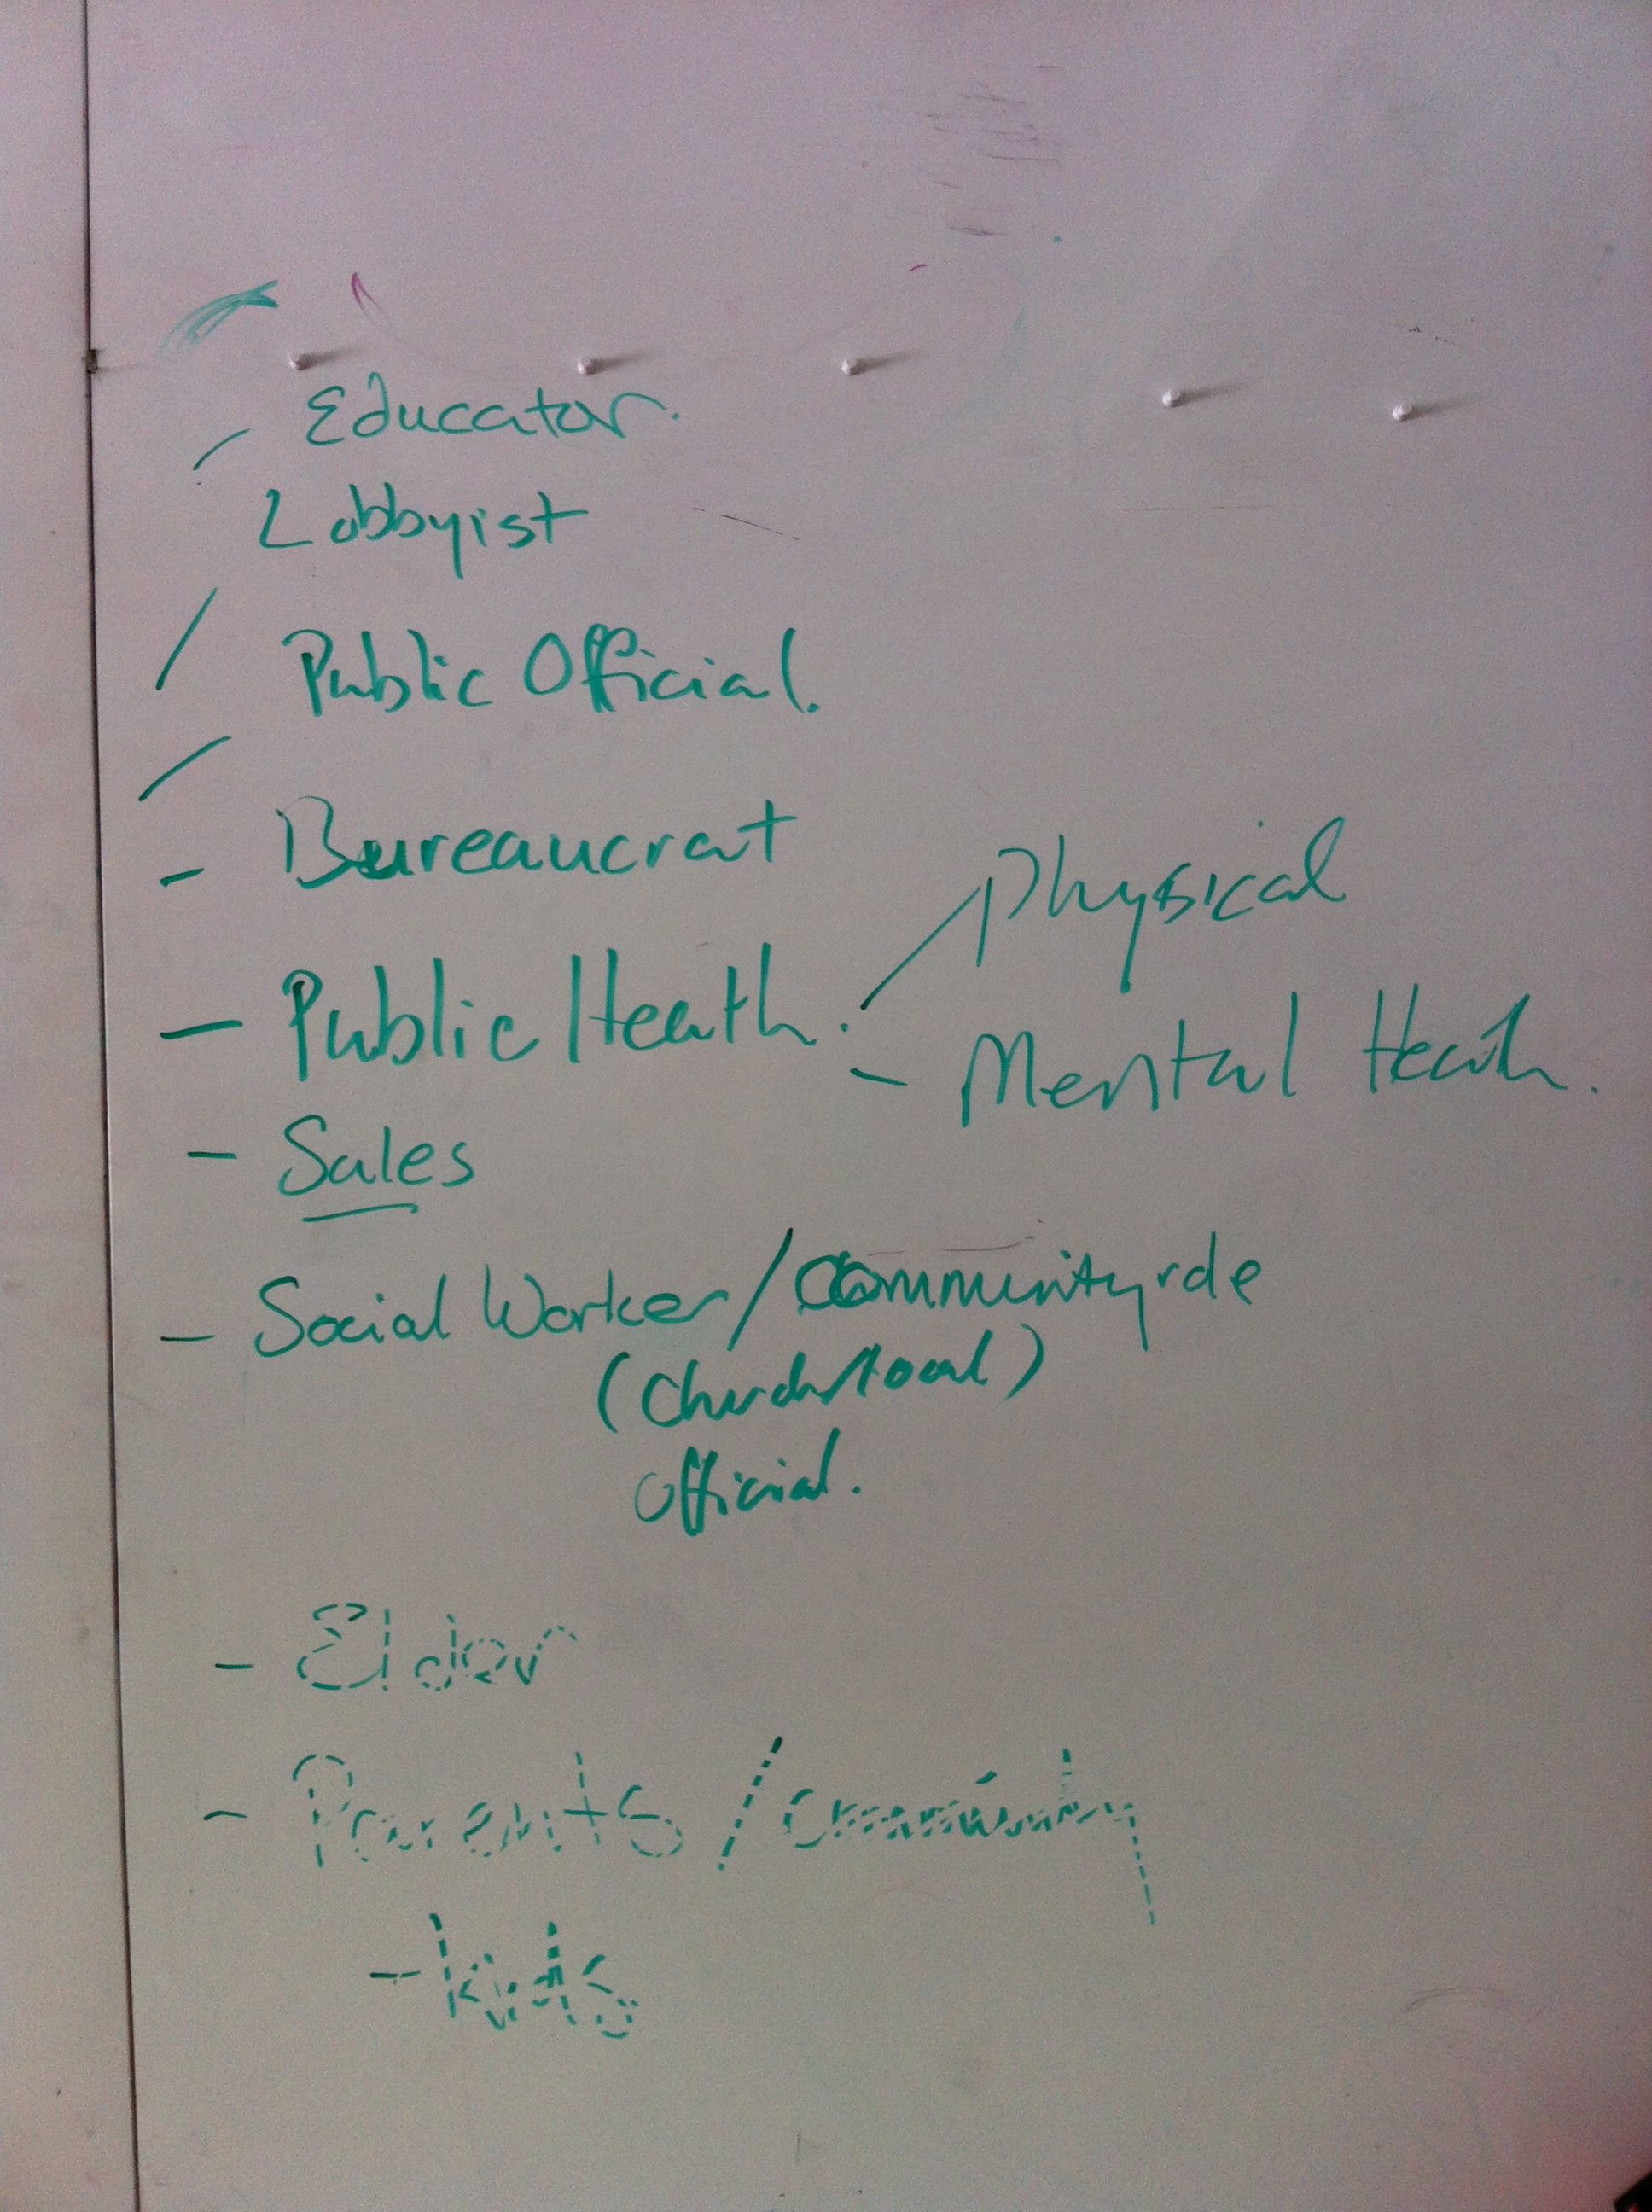 - Educator.
Lobbyist
Public Official.
- Bureaucrat
Physical
- Public Heath.
- Mental Heath.
- Sales
- Social Worker/Community role
official.
- Elder
- Parents/Community
- kids